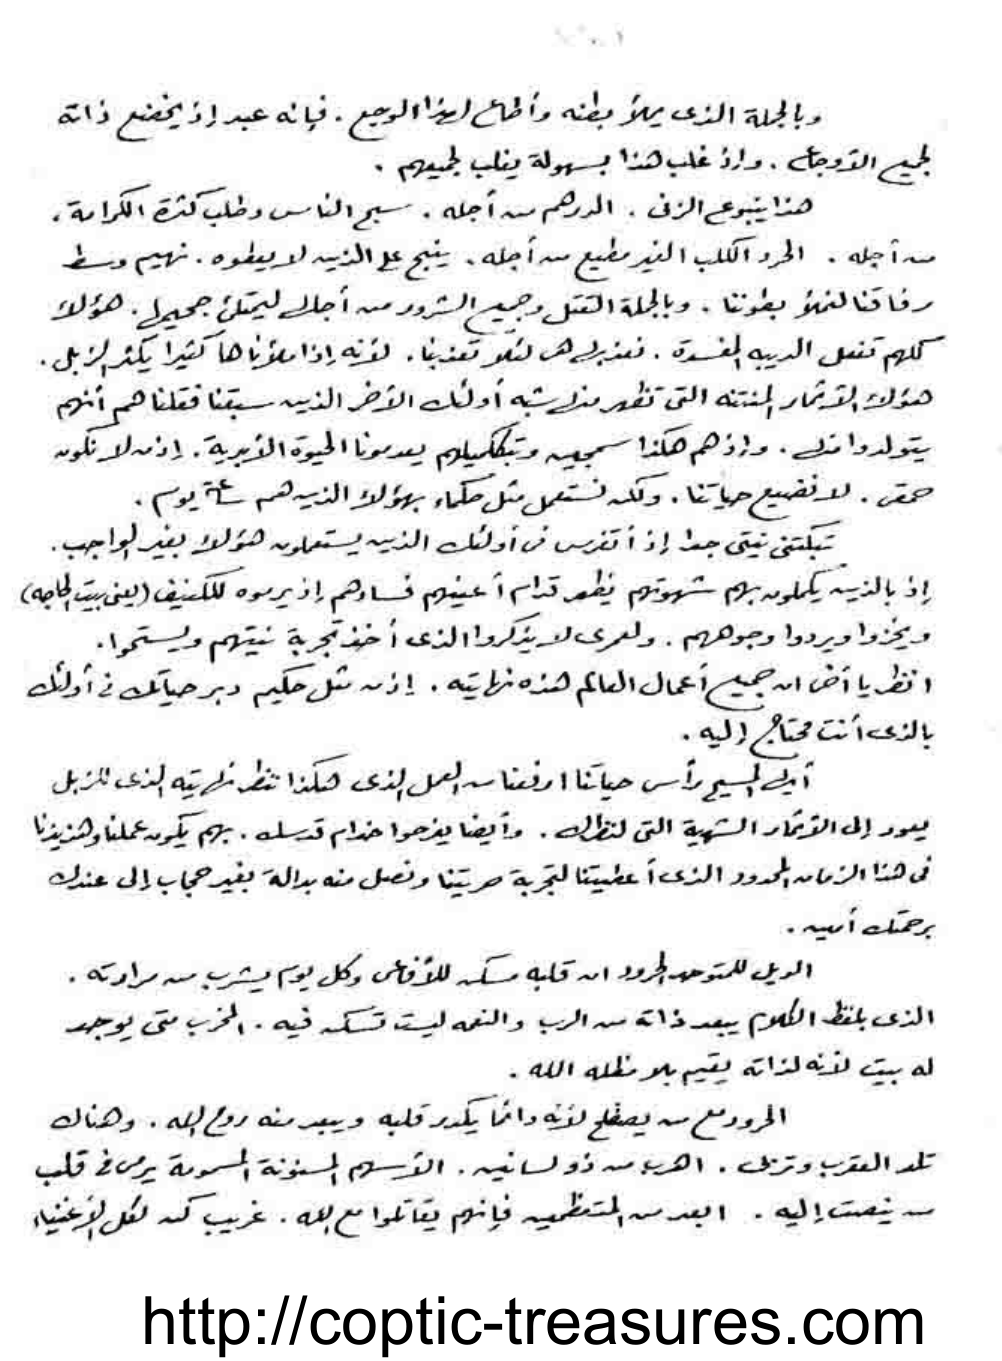 وبالجملة الذى يملأ بطنه وأطاع لهذا الوجع . فإنه عبد إذ يخضع ذاته
لجميع الأوجاع . وإذ غلب هذا بسهولة يغلب لجميعهم .
هذا ينبوع الزنى . الدرهم من أجله . سبح الناس وطلب كثرة الكرامة ،
من أجله . الحرد الكلب الغير مطيع من أجله . ينبح على الذين لا يعطوه . نهيم وسط
رفاقنا لنملأ بطوننا . وبالجملة القتل وجميع الشرور من أجل ليمتلئ جميعها . هؤلاء
كلهم تفعل الديبه المفسدة . لئلا تعذبنا . لأنه إذا ملأناها كثيرا يكثر الزبل .
هؤلاء الأثمار المنتنه التى تظهر منها شبه أولئك الأخر الذين سبقنا فقلنا هم أنهم
يتولدوا منها . وإذ هم هكذا سمجين وبتكميلهم يعدمونا الحيوة الأبدية . إذن لا نكون
حمقى . لا نضيع حياتنا . ولكن نستعمل مثل حكماء بهؤلاء الذين هم ساعة يوم .
تبكتنى نيتى جدا إذ أتفرس فى أولئك الذين يستعملون هؤلاء بغير الواجب .
إذ بالذين يكملون بهم شهوتهم يظهر قدام أعينهم فسادهم إذ يرموه للكنيف (يعنى بيت الحاجه)
ويخزوا ويردوا وجوههم . ولعمرى لا يذكروا الذى أخذ تجربة نيتهم ويستحوا .
انظر يا أخى ان جميع أعمال العالم هذه نهايته . إذن مثل حكيم دبر حياتك فى أولئك
بالذى أنت محتاج إليه .
أيها المسيح رأس حياتنا ارفعنا من العمل الذى هكذا ننظر نهايته الذى للزبل
يعود إلى الأثمار الشهية التى لنظرك . وأيضا يفرحوا خدام قدسك . بهم يكون عملنا وهذيذنا
فى هذا الزمان المحدود الذى أعطيتنا لتجربة حريتنا ونصل منه بدالة بغير حجاب إلى عندك
برحمتك أمين .
الويل للمتوحد الحرود ان قلبه مسكن للأفاعى وكل يوم يشرب من مرارته .
الذى بلفظ الكلام يبعد ذاته من الرب والنعمه ليست تسكن فيه . المخرب متى يوجد
له بيت لأنه لذاته يقيم بلا مظله الله .
الحرود مع من يصطلح لأنه دائما يكدر قلبه ويبعد منه روح الله . وهناك
تلد العقرب وتربى . اهرب من ذو لسانين . الأسهم المسنونة المسمومة يرمى فى قلب
من ينصت إليه . ابعد من المتعظمين فإنهم يقاتلوا مع الله . غريب كن لكل الأغنياء
http://coptic-treasures.com